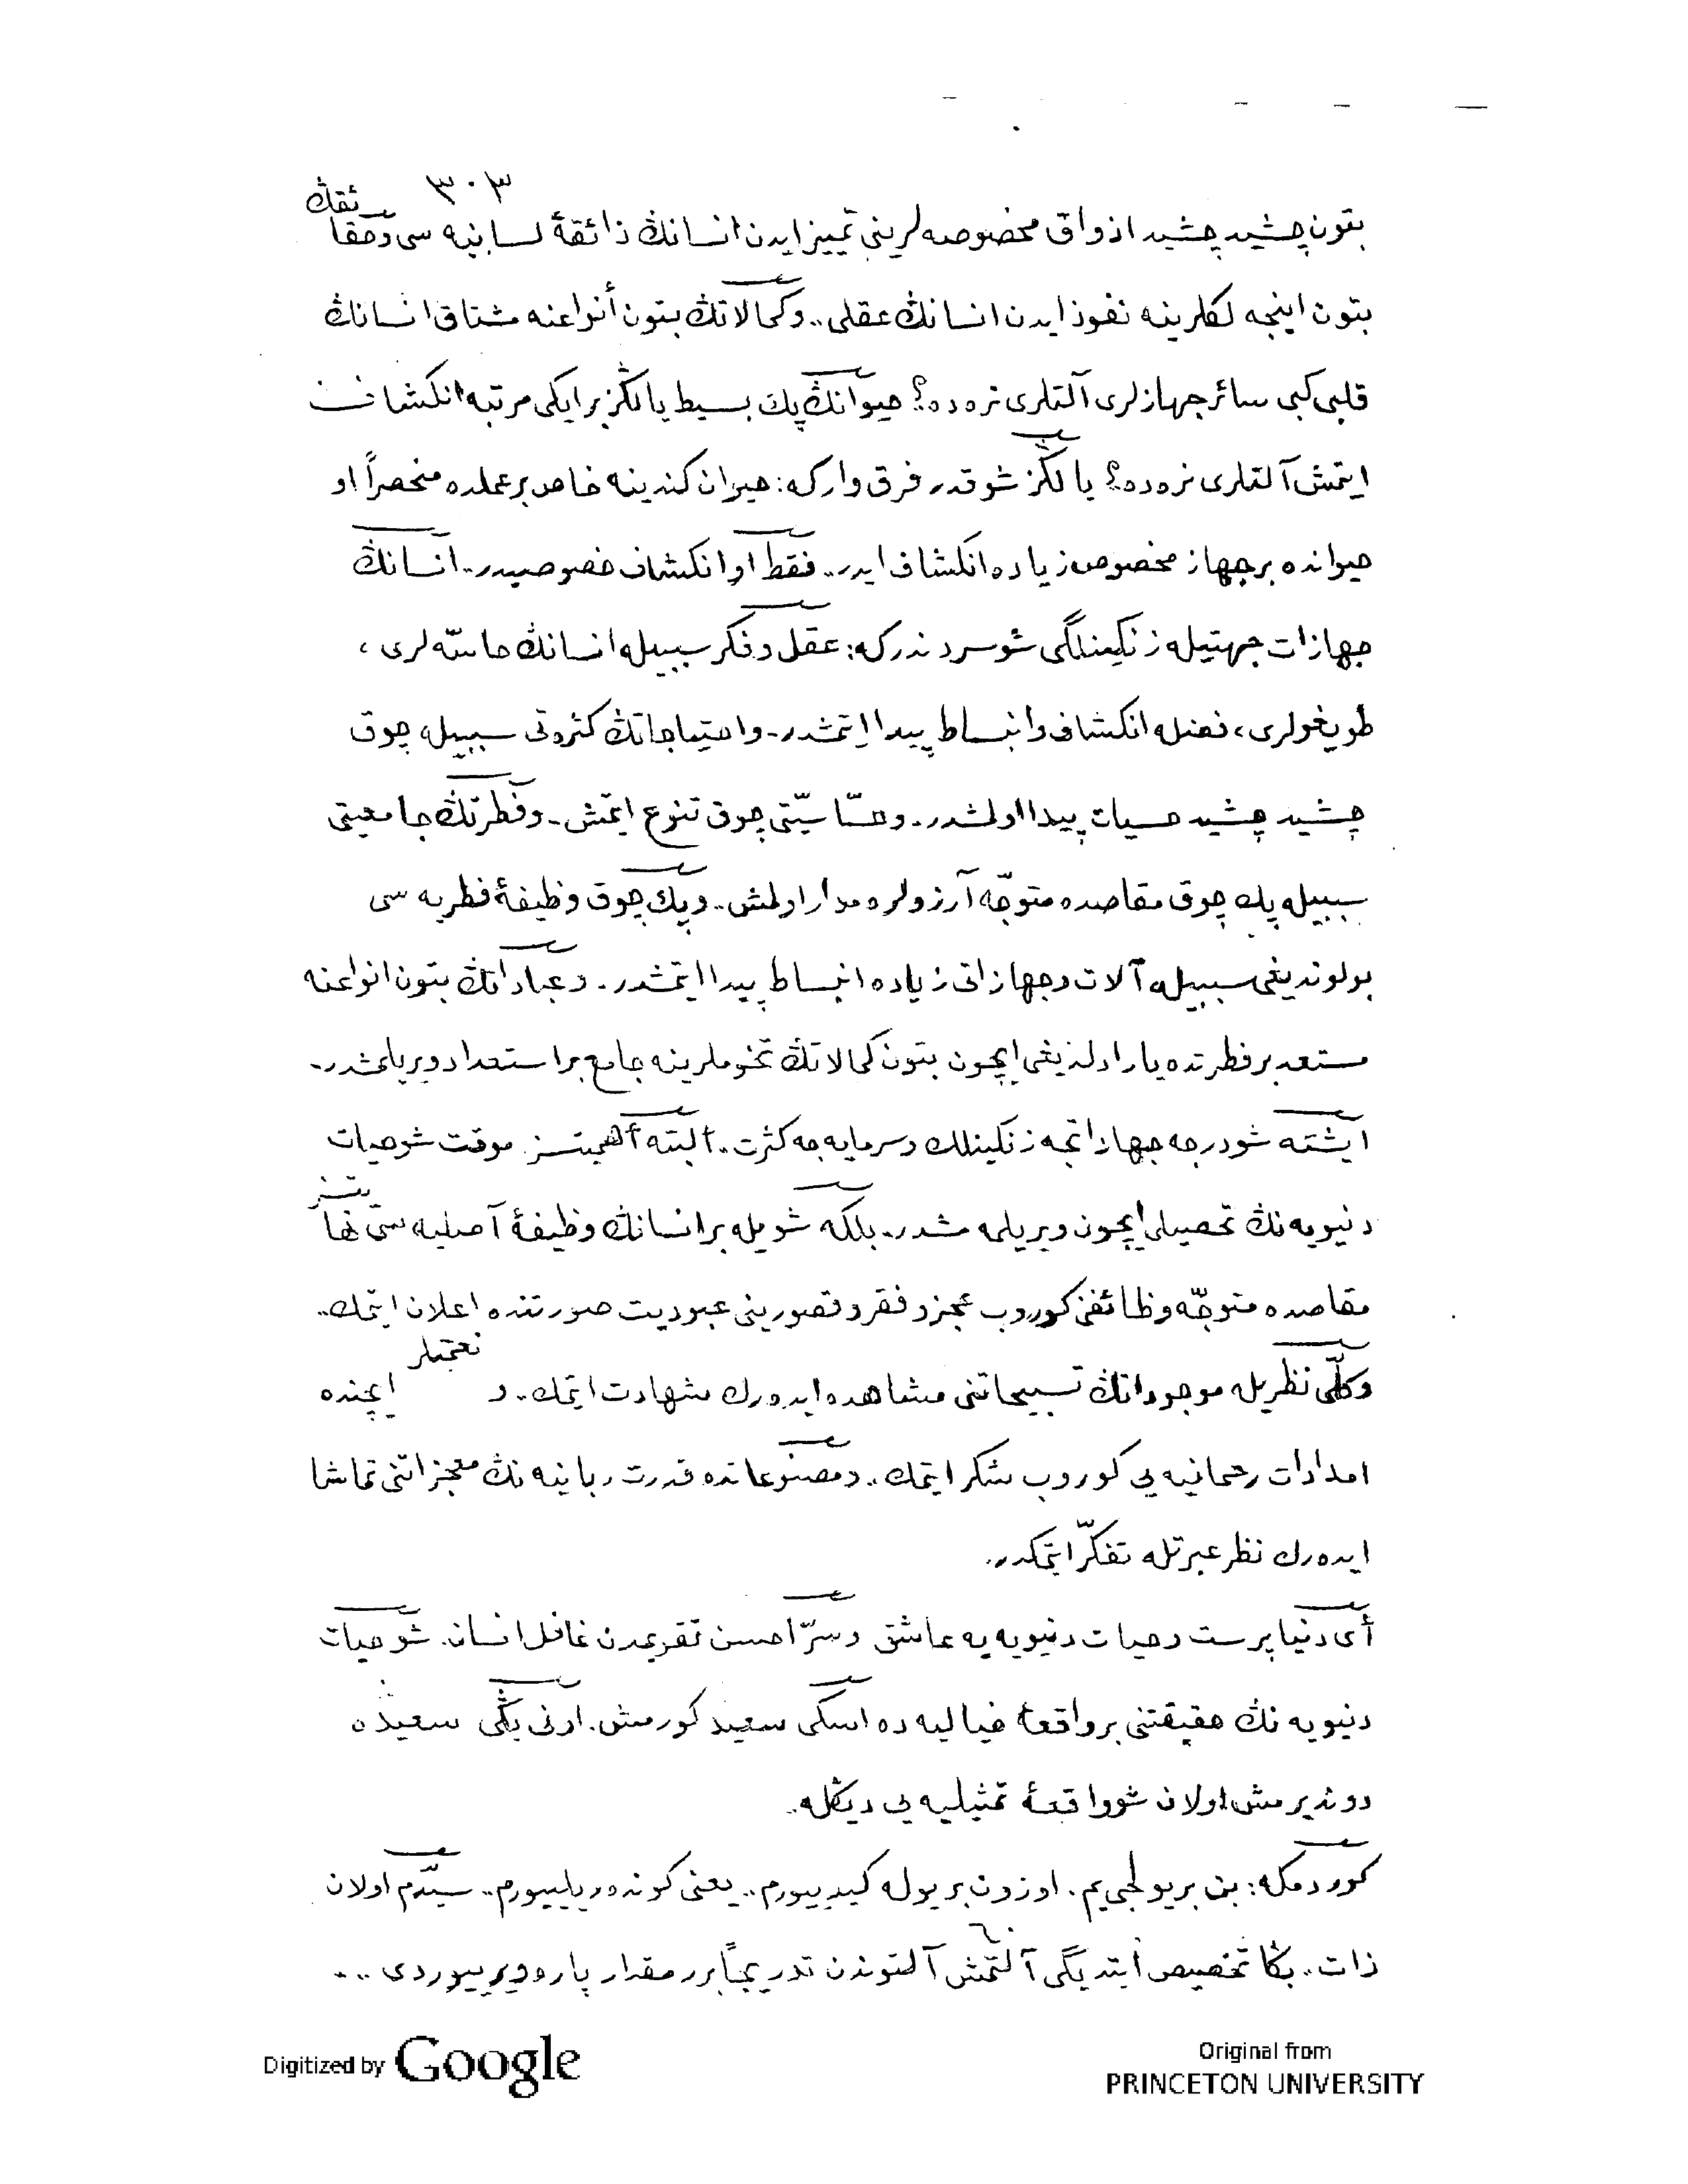 ٣٠٣
بتون چشید چشید اذواق مخصوصه‌لرینی تمییز ایدن انسانڭ ذائقهٔ لسانیه سی وحقائقڭ
بتون اینجه لكلرینه نفوذ ایدن انسانڭ عقلی.. وكمالاتڭ بتون أنواعنه مشتاق انسانڭ
قلبی كبی سائر جهازلری آلتلری نره‌ده؟ حیوانڭ پك بسیط یالڭز بر ایكی مرتبه انكشاف
ایتمش آلتلری نره‌ده؟ یالڭز شو قدر فرق وار كه: حیوان كندینه خاص بر عملده منحصراً او
حیوانده بر جهاز مخصوص زیاده انكشاف ایدر.. فقط او انكشاف خصوصیدر.. انسانڭ
جهازات جهتیله زنكینلگی شو سردندر كه: عقل و فكر سببیله انسانڭ حاسّه لری ،
طویغولری، فضله انكشاف وانبساط پیدا ایتمشدر.. واحتیاجاتڭ كثرتی سببیله چوق
چشید چشید حسیات پیدا اولمشدر.. وحسّاسیّتی چوق تنوع ایتمش.. وفطرتڭ جامعیتی
سببیله پك چوق مقاصده متوجّه آرزولره مدار اولمش.. وپك چوق وظیفهٔ فطریه سی
بولوندیغی سببیله آلات وجهازاتی زیاده انبساط پیدا ایتمشدر.. وعباداتڭ بتون انواعنه
مستعد بر فطرتده یارادلدیغی ایچون بتون كمالاتڭ تخوملرینه جامع بر استعداد ویریلمشدر..
ایشته شو درجه جهازاتجه زنكینلك وسرمایه‌جه كثرت.. ألبته أهمیتسز موقت شو حیات
دنیویه نڭ تحصیلی ایچون ویریلمه مشدر.. بلكه شویله بر انسانڭ وظیفهٔ أصلیه سی نهایتسز
مقاصده متوجّه وظائفنی كوروب عجز و فقر و قصورینی عبودیت صورتنده اعلان ایتمك..
وكلّی نظریله موجوداتڭ تسبیحاتنی مشاهده ایده‌رك شهادت ایتمك.. و نعمتلر ایچنده
امدادات رحمانیه یی كوروب شكر ایتمك.. ومصنوعاتده قدرت ربانیه نڭ معجزاتنی تماشا
ایده‌رك نظر عبرتله تفكّر ایتمكدر..
أی دنیاپرست وحیات دنیویه یه عاشق وسرّ احسن تقویمدن غافل انسان. شو حیات
دنیویه نڭ حقیقتنی بر واقعهٔ خیالیه ده اسكی سعید كورمش. اونی یڭی سعیده
دوندیرمش اولان شو واقعهٔ تمثیلیه یی دیڭله..
كوردمكه: بن بر یولجی یم. اوزون بر یوله كیدییورم.. یعنی كونده‌ریلییورم.. سیّدم اولان
ذات.. بڭا تخصیص ایتدیگی ٦٠ آلتمش آلتوندن تدریجاً برر مقدار پاره ویرییوردی ..
Digitized by Google
Original from
PRINCETON UNIVERSITY